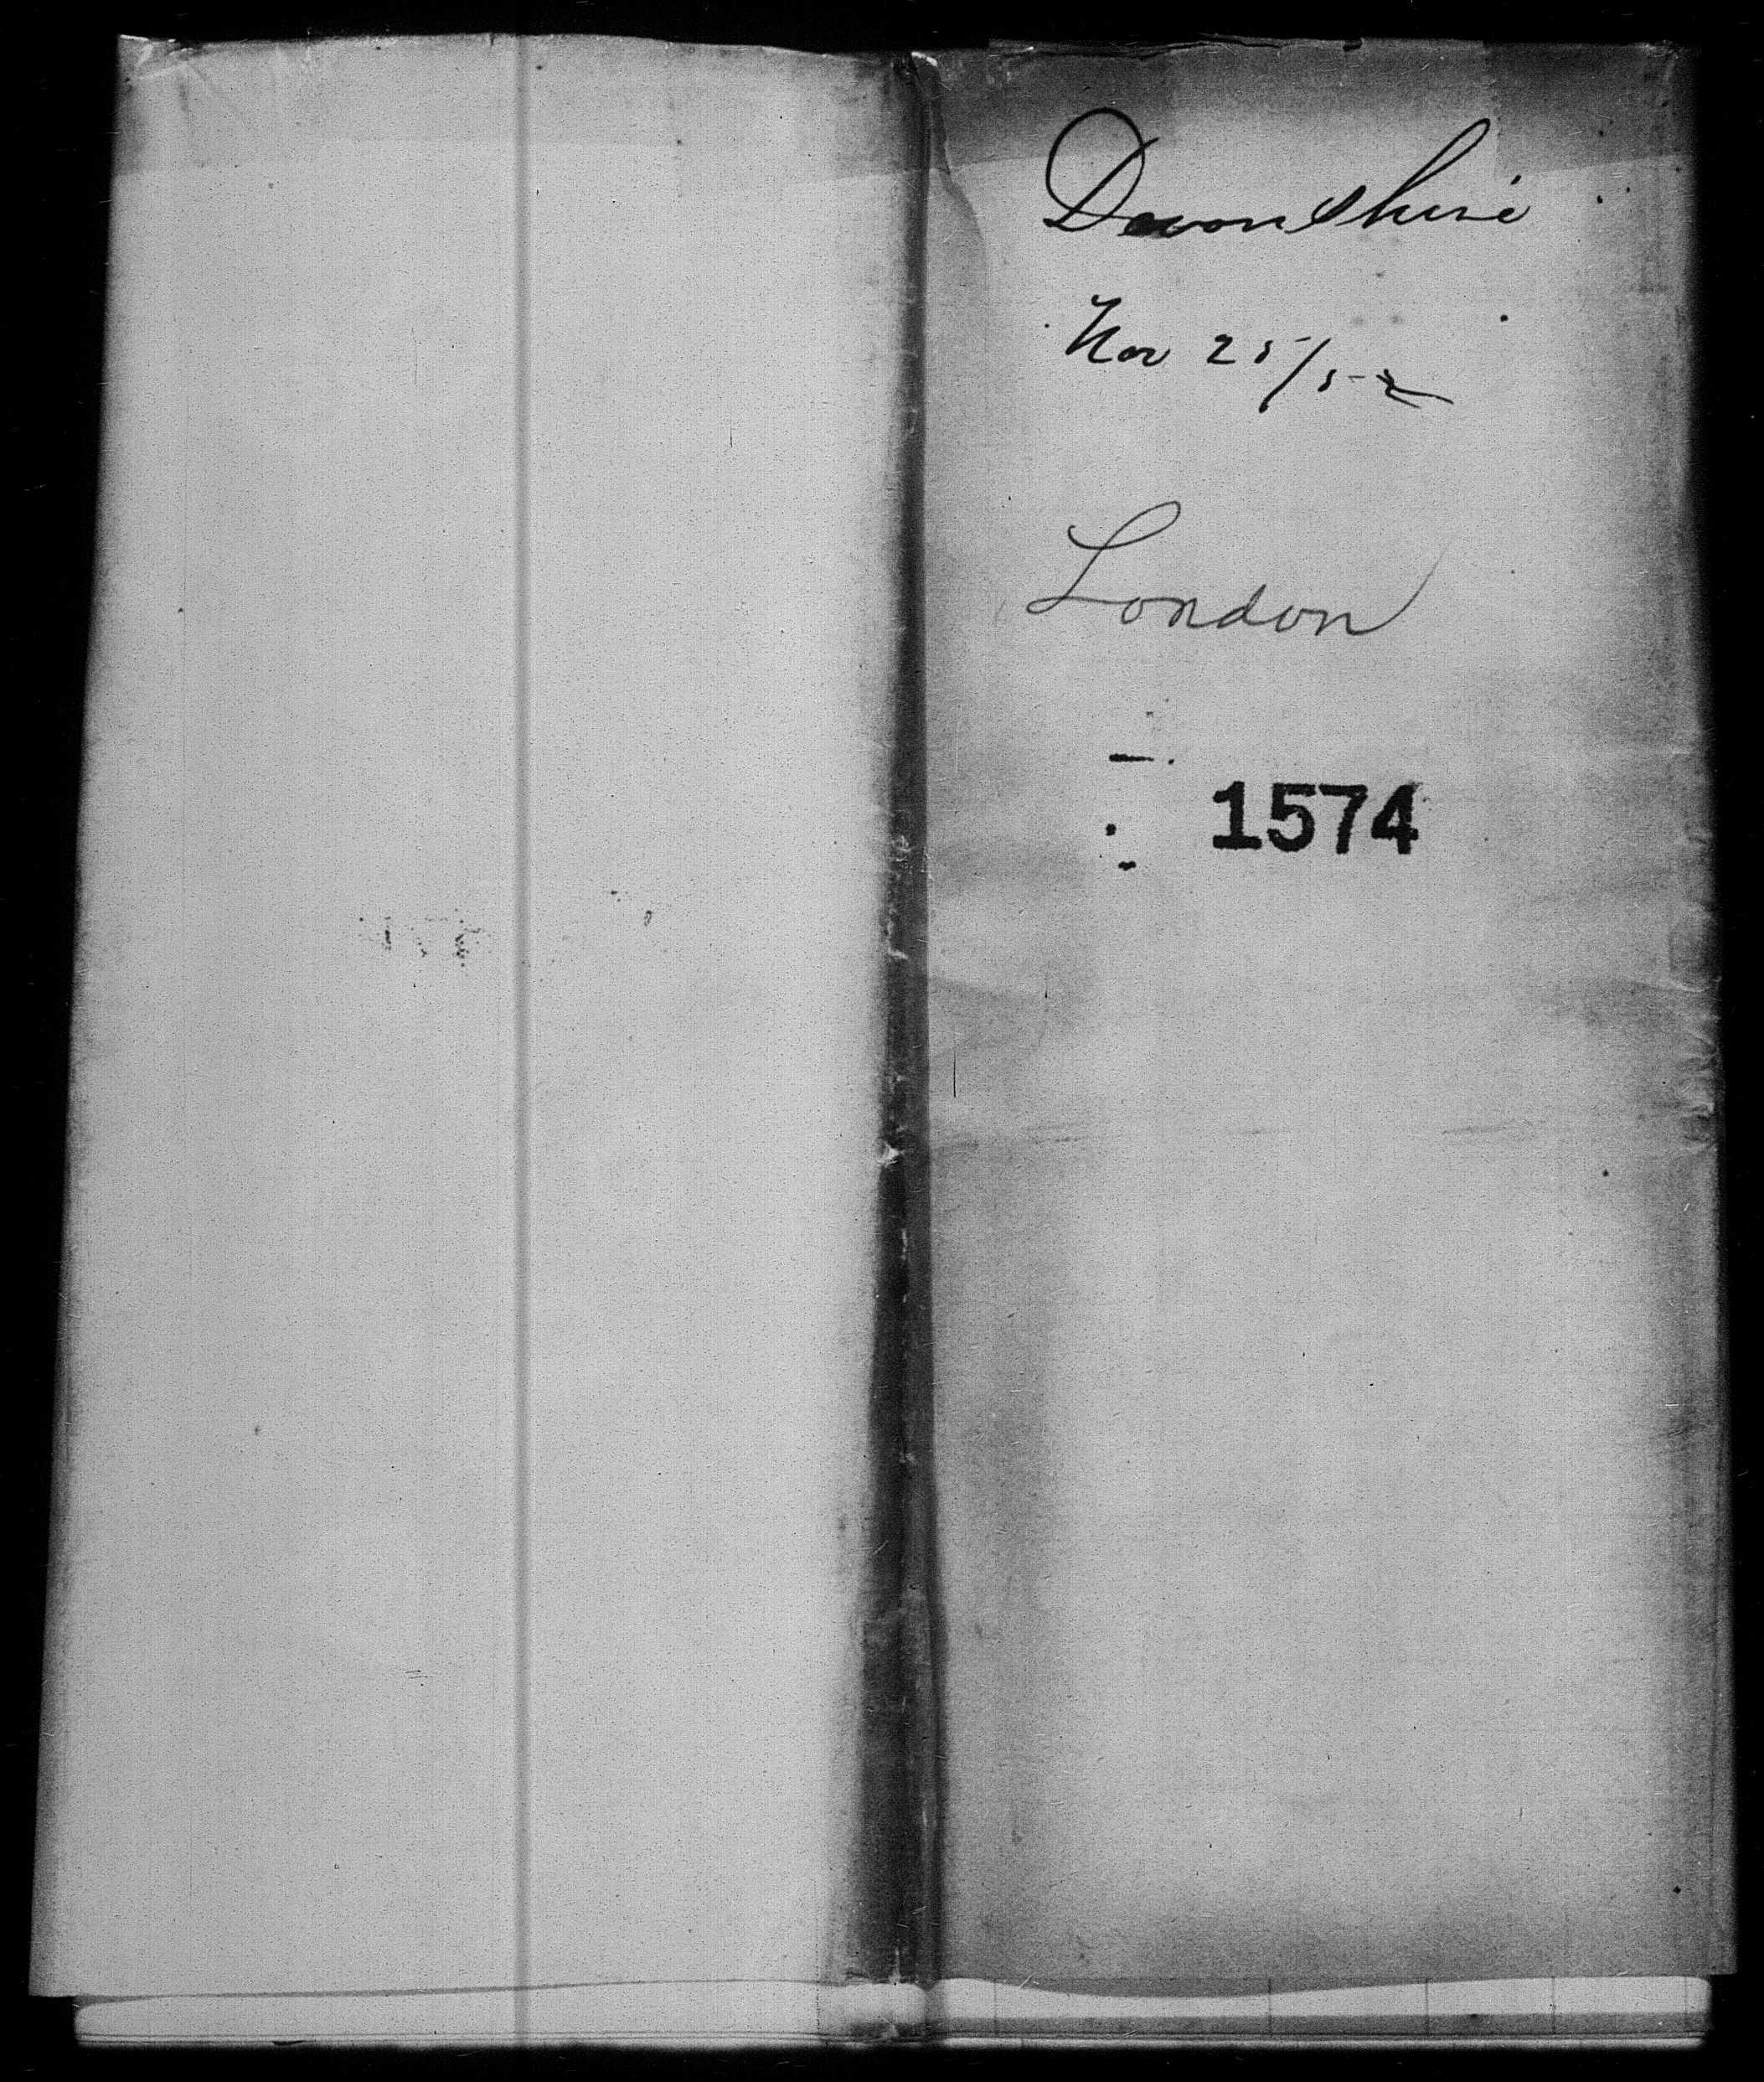 Devonshire
Nov 25/52
London
1574